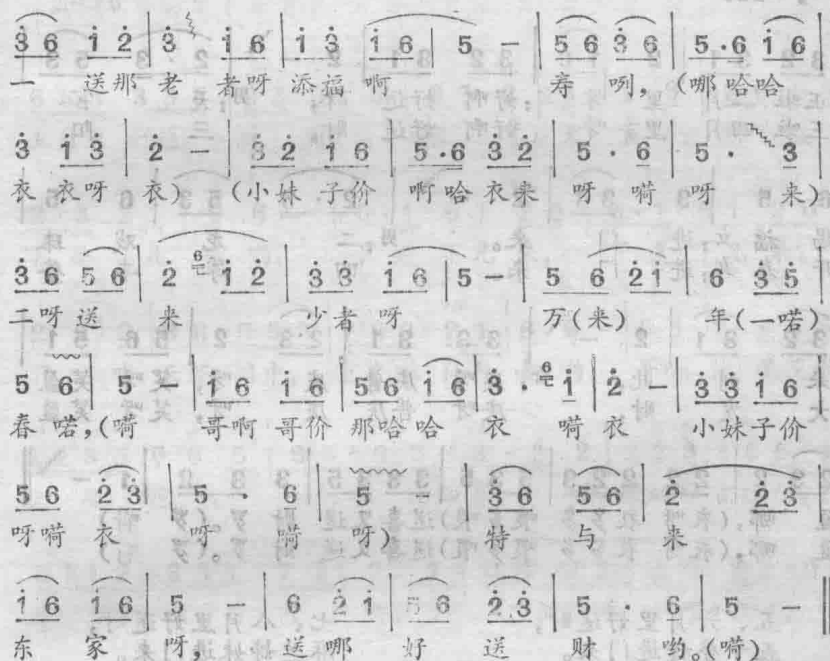 3̇ 6 1̇ 2̇ | 3̇ 1̇ 6 | 1̇ 3̇ 1̇ 6 | 5 — | 5 6 3̇ 6 | 5.·6 1̇ 6 |
一 送那 老 者呀 添福 啊 寿 咧,(哪 哈哈
3̇ 1̇ 3̇ | 2̇ — | 3̇ 2̇ 1̇ 6 | 5·6 3̇ 2̇ | 5 · 6 | 5 · 3̇ |
衣 衣呀 衣) (小妹 子价 啊哈 衣来 呀 嗬 呀 来)
3̇ 6 5 6 | 2̇ 6 1̇ 2̇ | 3̇ 3̇ 1̇ 6 | 5 — | 5 6 2̇ 1̇ | 6 3̇ 5̇ |
二呀 送 来 少者 呀 万(来) 年(一喏)
5 6 | 5 — | 1̇ 6 1̇ 6 | 5 6 1̇ 6 | 3̇ · 6 1̇ | 2̇ — | 3̇ 3̇ 1̇ 6 |
春 喏,(嗬 哥啊 哥价 那哈 哈 衣 嗬 衣 小妹 子价
5 6 2̇ 3̇ | 5 · 6 | 5 — | 3̇ 6 5 6 | 2̇ 2̇ 3̇ |
呀嗬 衣 呀 嗬 呀) 特 与 来
1̇ 6 1̇ 6 | 5 — | 6 2̇ 1̇ | 5 6 2̇·3̇ | 5 · 6 | 5 — ‖
东 家 呀, 送 哪 好 送 财 哟。(嗬)